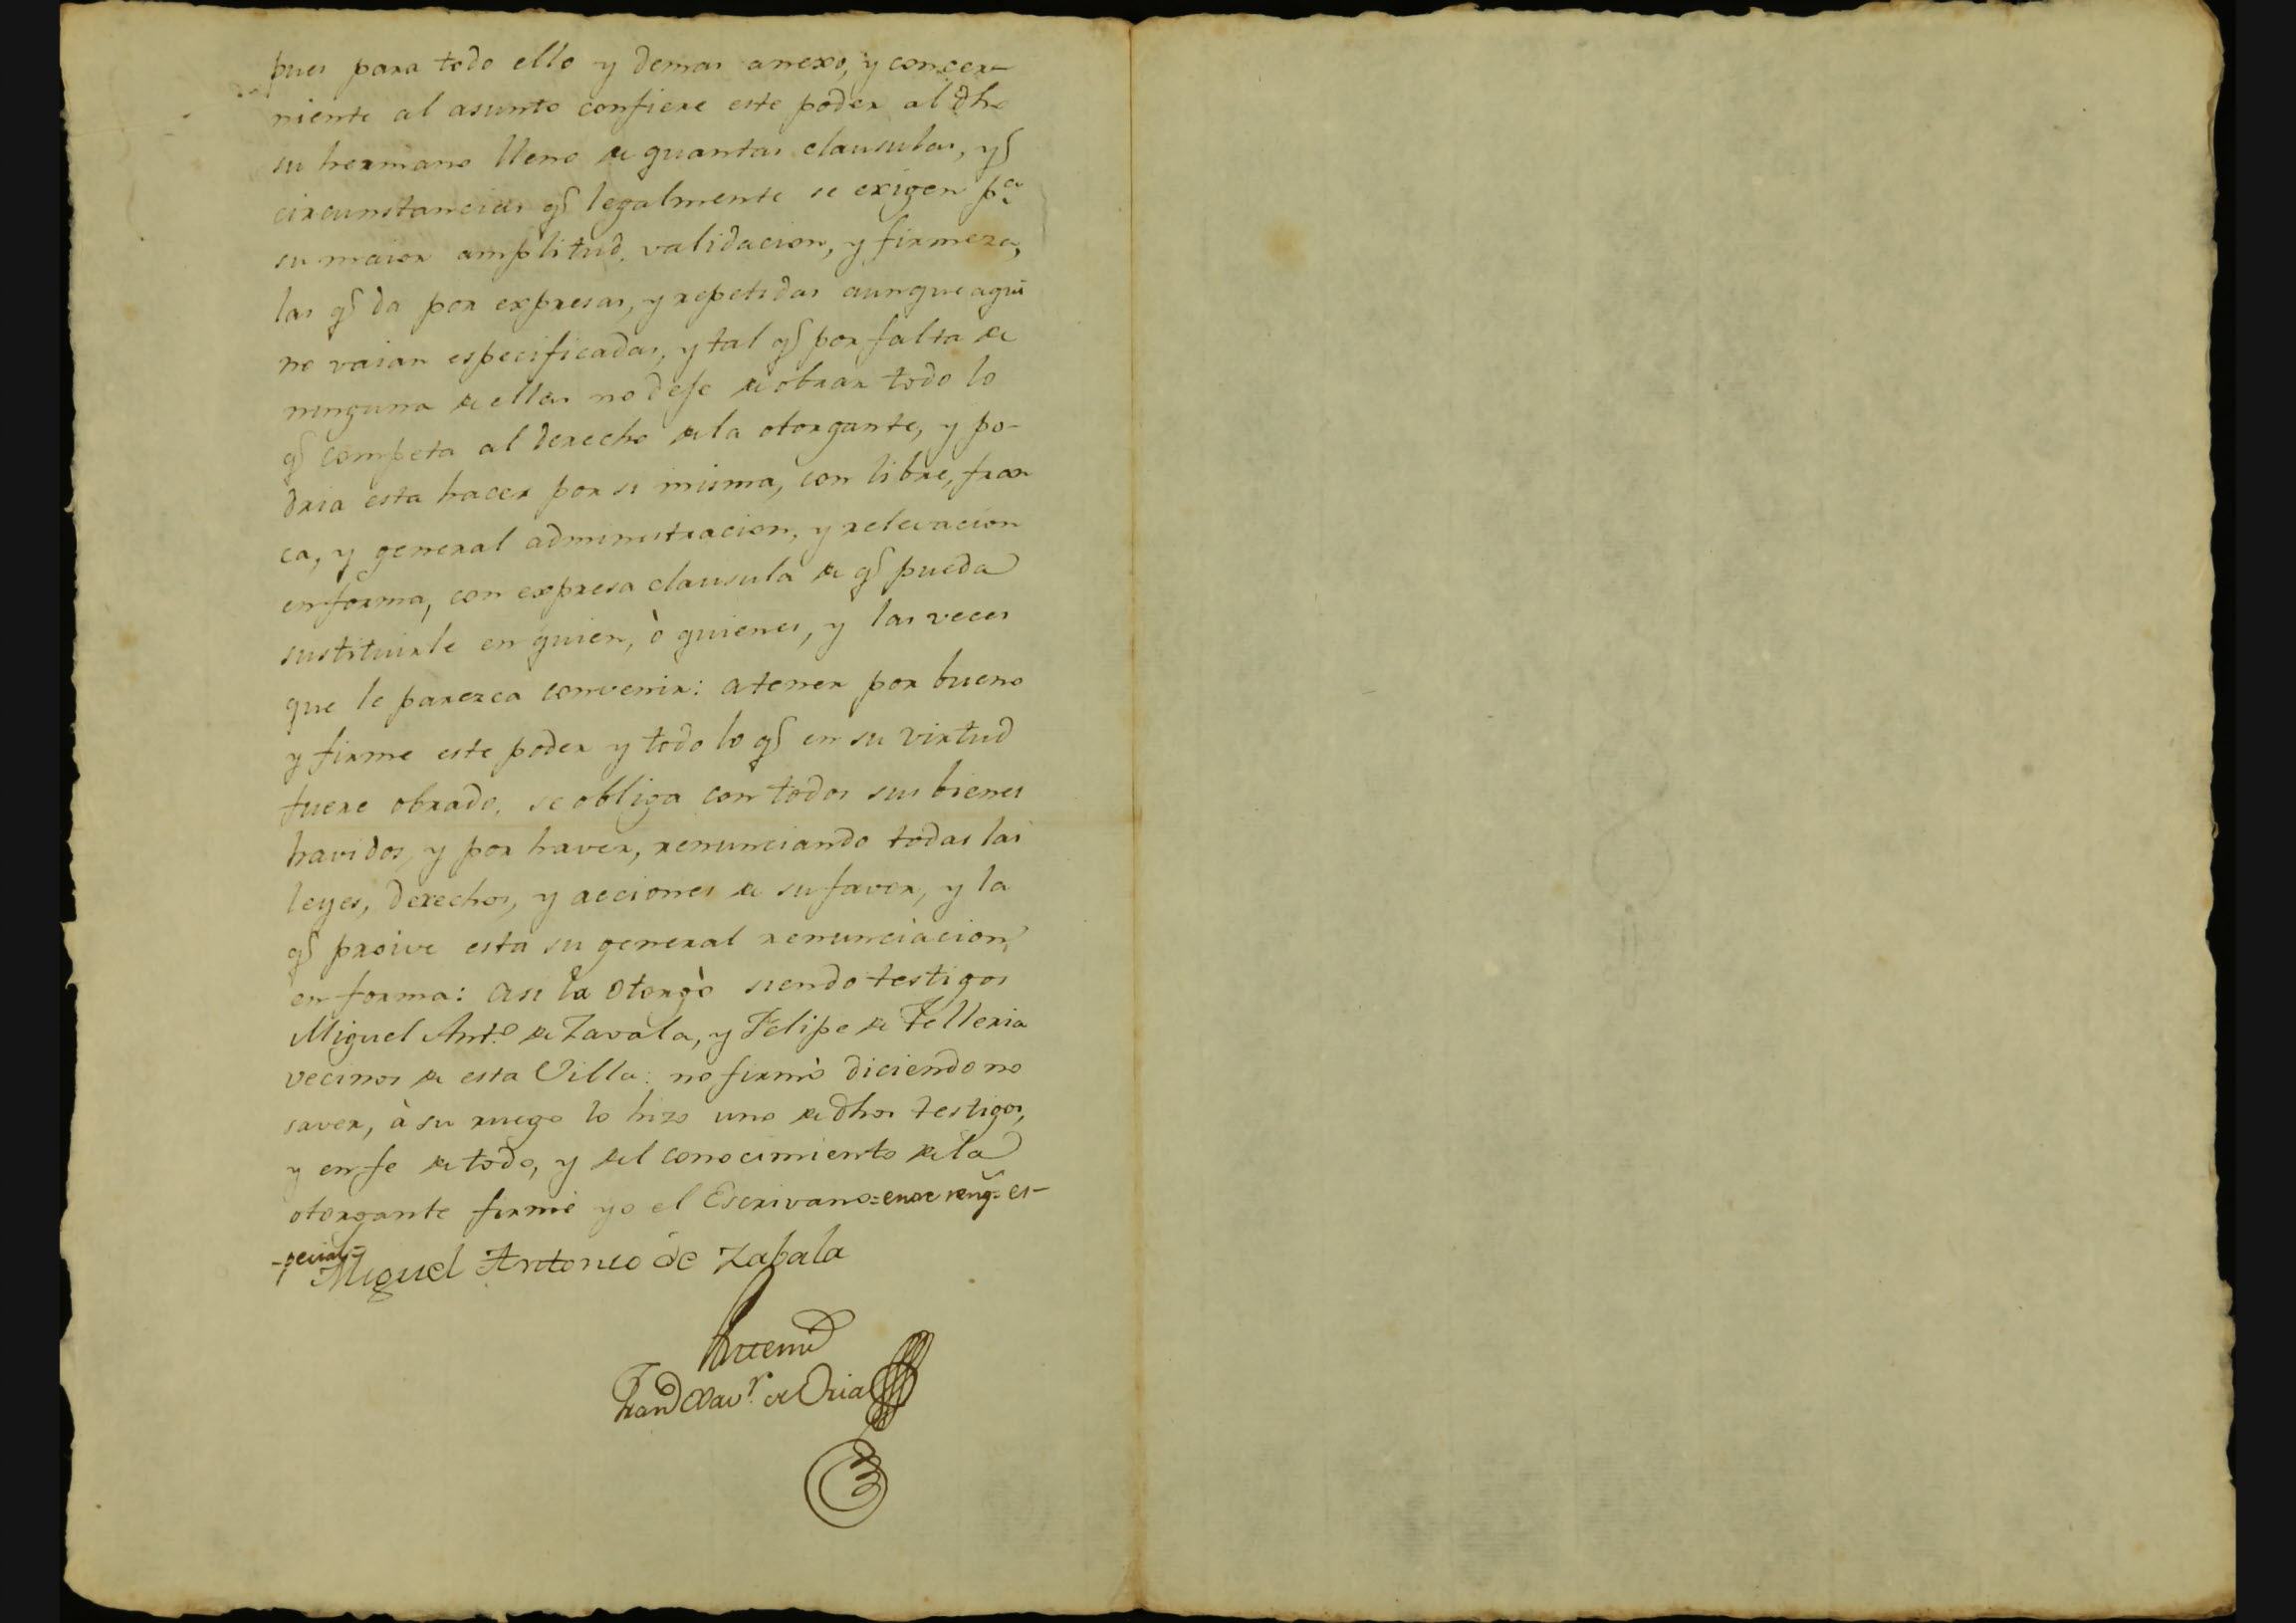 pues para todo ello y demas anexo, y concer-
niente al asunto confiere este poder al dho
su hermano lleno de quantas clausulas, y
circunstancias q̃ legalmente se exigen pa.
su maior amplitud, validacion, y firmeza,
las q̃ da por expresas, y repetidas aunque aqui
no vaian especificadas, y tal q̃ por falta de
ninguna de ellas no deje de obrar todo lo
q̃ competa al derecho de la otorgante, y po-
dria esta hacer por si misma, con libre, fran
ca, y general administracion, y relevacion
en forma, con expresa clausula de q̃ pueda
sustituirle en quien, ò quienes, y las veces
que le parezca convenir: a tener por bueno
y firme este poder y todo lo q̃ en su virtud
fuere obrado, se obliga con todos sus bienes
havidos, y por haver, renunciando todas las
leyes, derechos, y acciones de su favor, y la
q̃ proive esta su general renunciacion,
en forma: asi la otorgò siendo testigos
Miguel Anto. de Zavala, y Felipe de Telleria
vecinos de esta Villa: no firmò diciendo no
saver, à su ruego lo hizo uno de dhos testigos,
y en fe de todo, y del conocimiento de la
otorgante firmé yo el Escrivano = entre reng.s es-
-pecial-
Miguel Antonio de Zabala
Ante mi
Franco Xavr. de Oria